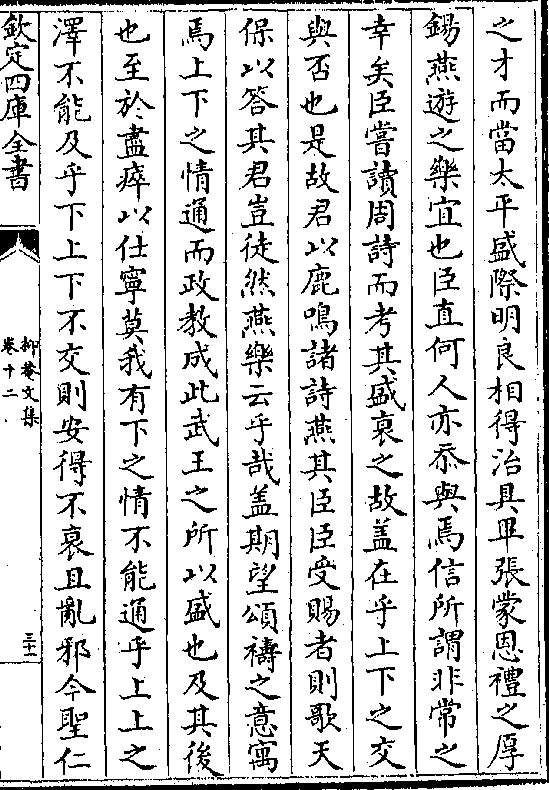 之才而當太平盛際明良相得治具畢張蒙恩禮之厚
錫燕遊之樂宜也臣直何人亦忝與焉信所謂非常之
幸矣臣嘗讀周詩而考其盛衰之故盖在乎上下之交
與否也是故君以鹿鳴諸詩燕其臣臣受賜者則歌天
保以答其君豈徒然燕樂云乎哉盖期望頌禱之意寓
焉上下之情通而政教成此武王之所以盛也及其後
也至於盡瘁以仕寧莫我有下之情不能通乎上上之
澤不能及乎下上下不交則安得不衰且亂邪今聖仁
欽定四庫全書
抑菴文集
卷十二
三十一